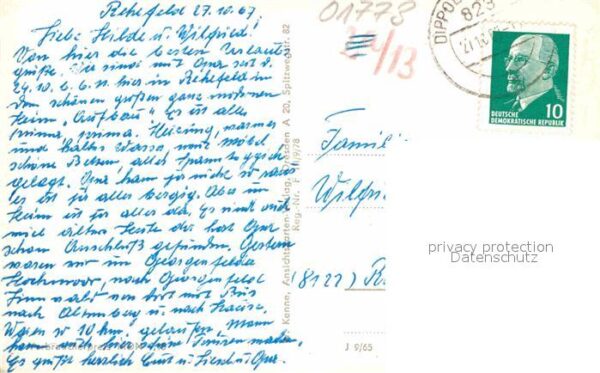 Rehefeld 27.10.67
Liebe Hilde u. Wilfried!
Von hier die besten Urlaubs
grüße. Wir sind mit Oma seit d.
24.10. b. 6.11. hier in Rehefeld im
dem schönen großen ganz modernen
Heim „Aufbau". Es ist alles
prima, prima. Heizung, warmes
und kaltes Wasser, neue Möbel
schöne Betten, alles Spannteppich
gelegt. Oma kann ja nicht so raus
es ist ja alles bergig. Aber im
Heim ist ja alles da. Es sind auch
viel ältere Leute da hat Oma
schon Anschluß gefunden. Gestern
waren wir im Georgenfelde
Hochmoor, nach Georgenfeld
Zinnwald von dort mit Bus
nach Altenberg u. nach Hause.
Waren so 10 km. gelaufen. Mann
kann auch hier eine Touren machen.
Es grüßt herzlich Curt u. Liesel u. Oma.
Kenne, Ansichtskarten-Verlag, Dresden A 20, Spitzwegstr. 82
Reg.-Nr. F 11/9/78
01773
24/13
DIPPOL
823
27.10
DEUTSCHE
DEMOKRATISCHE REPUBLIK
10
Famil
Wilfrie
(8122) Ra
J 9/65
privacy protection
Datenschutz